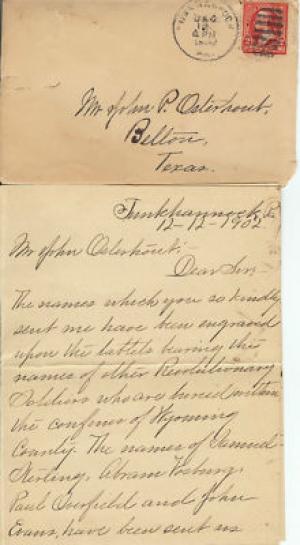 DEC
12
4 PM
Mr John P. Osterhout.
Belton,
Texas.
Tunkhannock, Pa
12-12-1902
Mr John Osterhout:-
Dear Sir-
The names which you so kindly
sent me have been engraved
upon the tablets bearing the
names of other Revolutionary
Soldiers who are buried within
the confines of Wyoming
County. The names of Samuel
Sterling, Abram Vosburg,
Paul Overfield and John
Evans, have been sent us